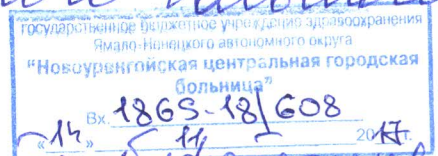 государственное бюджетное учреждение здравоохранения
Ямало-Ненецкого автономного округа
"Новоуренгойская центральная городская
больница"
Вх. 1869-18/608
«14» 11 2017 г.